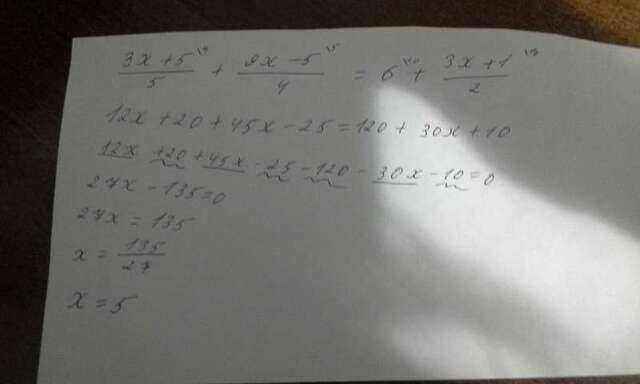 3x+5/5 + 9x-5/4 = 6 + 3x+1/2
12x+20+45x-25=120+30x+10
12x+20+45x-25-120-30x-10=0
27x-135=0
27x=135
x=135/27
x=5